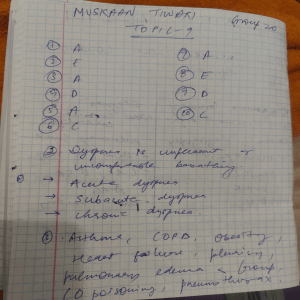 MUSKAAN TIWARI
Group 2
TOPIC-9
① A
② E
③ A
④ D
⑤ A
⑥ C
⑦ A
⑧ E
⑨ D
⑩ C
Dyspnea is unpleasant or
uncomfortable breathing
→ Acute dyspnea
→ Subacute dyspnea
→ chronic dyspnea
Asthma, COPD, obesity,
Heart failure, pleurisy,
pulmonary edema, croup,
CO poisoning, pneumothorax